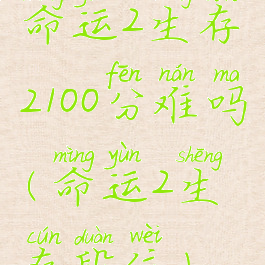 命运2生存
fēn nán ma
2100分难吗
mìng yùn shēng
(命运2生
cún duàn wèi
存段位)